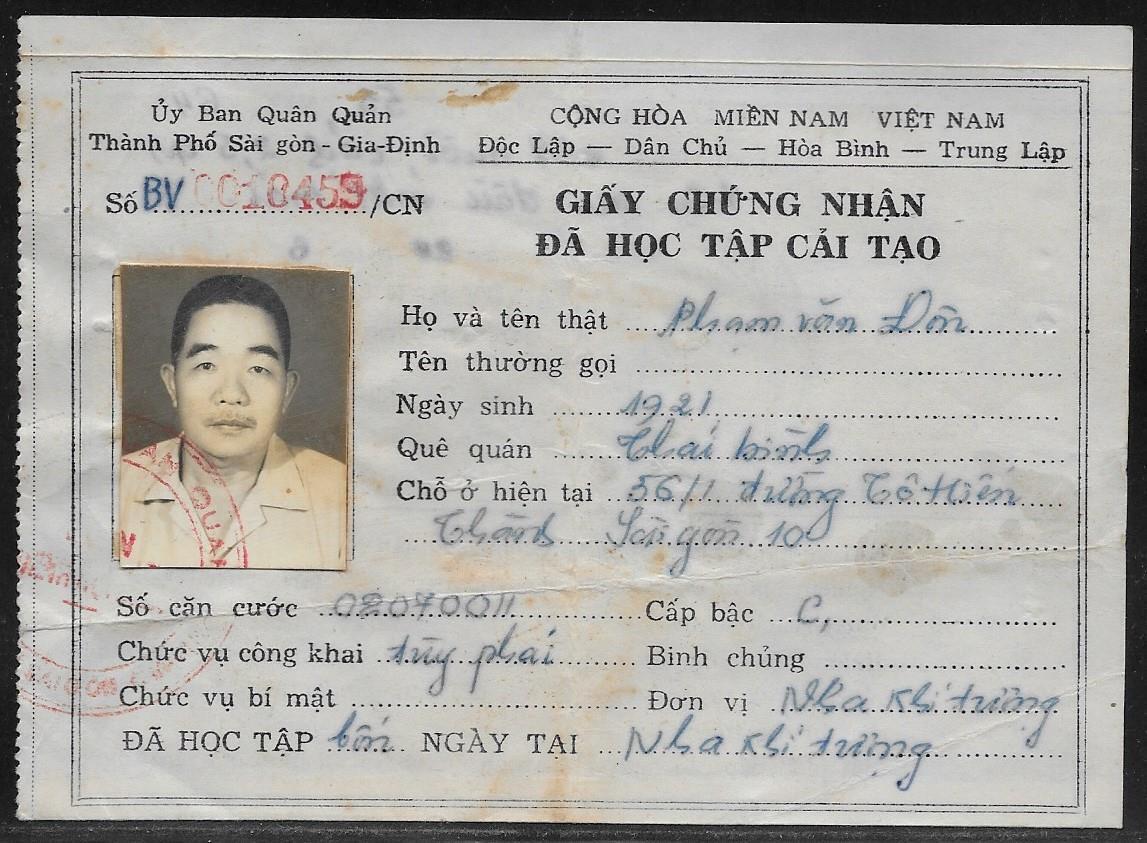 Ủy Ban Quân Quản
Thành Phố Sài gòn - Gia-Định
CỘNG HÒA MIỀN NAM VIỆT NAM
Độc Lập — Dân Chủ — Hòa Bình — Trung Lập
Số BV 0010459 /CN
GIẤY CHỨNG NHẬN
ĐÃ HỌC TẬP CẢI TẠO
Họ và tên thật Phạm văn Đôn
Tên thường gọi
Ngày sinh 1921
Quê quán Thái bình
Chỗ ở hiện tại 56/1 đường Tô Hiến
Thành Sàigòn 10
Số căn cước 02070011 Cấp bậc C,
Chức vụ công khai tùy phái Binh chủng
Chức vụ bí mật Đơn vị Nha Khí tượng
ĐÃ HỌC TẬP bốn NGÀY TẠI Nha Khí tượng